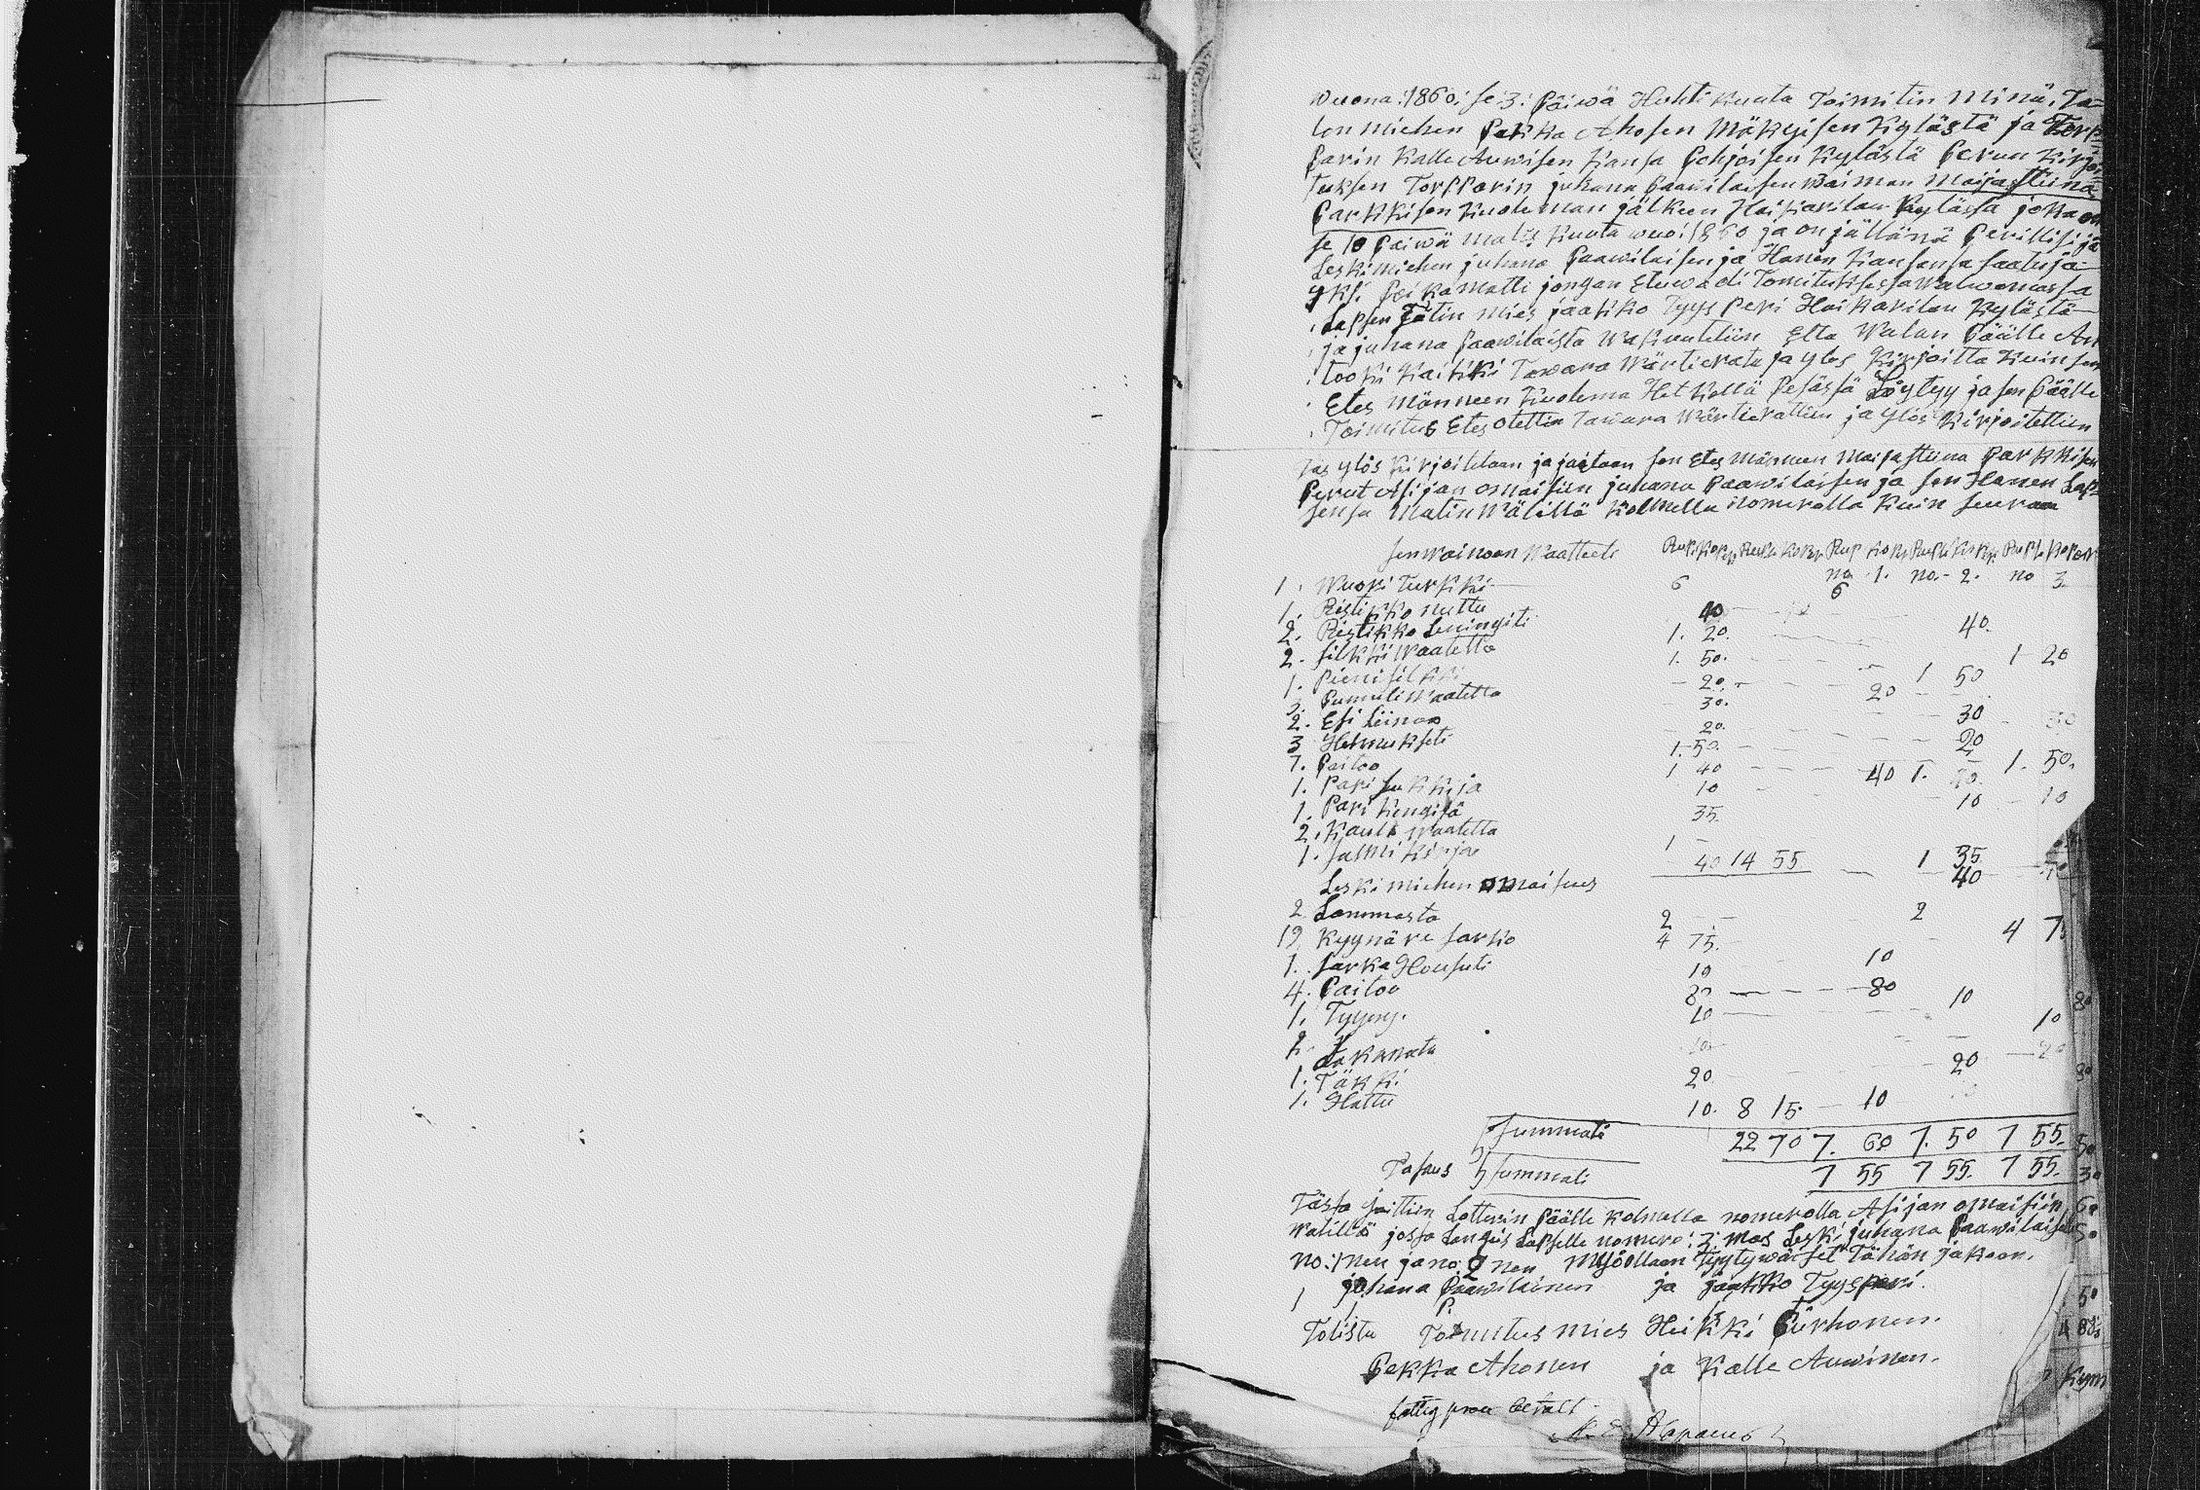 Wuona 1860 se 3. Päiwä Huhti kuuta Toimitin Minä, Ta=
lon miehen Pekka Ahosen Mäkyisen Kylästä ja Torp=
Parin Kalle Auwisen kansa Pohjoisen Kylästä Perun Kirjoi=
tuksen Torpparin juhana Paawilaisen Waiman Maijastiina
Parkkisen kuoleman jälkeen Haikarilan Kylässä joka on
se 10 Päiwä Malis Kuuta wuo: 1860 ja on jällänä Perillisijä
Leskimiehen juhana Paawilaisen ja Hänen kansansa saatuja
yksi Poika Matti jongan Eduwadi Toimituksessa Walwomassa
Lapsen Tätin Mies jaakko Tyys Peri Haikarilan Kylästä
ja juhana Paawilaista Wakuutettiin Että Walan Päälle An
tooki kaikki Tawara Wärtierata ja ylos Kirjoitta Kuin sen
Etes Männeen Kuolema Hetkellä Pesässä Löytyy ja sen Päälle
Toimitus Etes otettiin Tawara Wärtierattiin ja ylös Kirjoitettiin
ylös kirjoitetaan ja jaetaan sen Etes Männeen Maijastiina Parkkisen
Perut Asijan omaisiin juhana Paawilaisen ja sen Hänen Lap=
sensa Matin Wälillä kolmella nomerolla Kuin seuraa
sen waimon Waatteet Rup Kop Rupl Kop Rup Kop Rupla Kop Rupla Kopek
no 1. no. 2. no 3.
1. Wuori Turkki 6 6
1. Ristikko nuttu 40 40.
2. Ristikko Leningiti 1. 20. 1 20
2. silkki Waatetta 1. 50. 1 50
1. Pieni silkki 20. 20
3. Pumuli Waatetta 30. 30
2. Esi Liinaa 20. 20
3 Helmukseti 1. 50. 1. 50.
7. Paitoo 1 40 40 1.
1. Pari sukkija 10 10
1. Pari kengitä 35. 35
2. Kaula Waatetta 1 1
1. salmi kirja 40 14 55 40
Leski miehen omaisuus
2 Lammasta 2 2
19 Kyynäre sarkoo 4 75. 4 75
1. sarka Housuti 10 10
4. Paitoo 80 80
1. Tyyny. 10 10
2. Lakanata 10
1. Täkki 20 20
1. Hattu 10. 8 15. 10
summati 22 70 7. 60 7. 50 7 55.
Tasaus summati 7 55 7 55. 7 55.
Tästä jaettiin Lotterin Päälle kolmella nomerolla Asijan omaisiin
Walillä jossa Langeis Lapselle nomero: 3 mas Leski juhana Paawilaiselle
no: 1 nen ja no 2 nen Myöollaan Tyytywäiset Tähän jakoon.
juhana Paawilainen ja jaakko Tyysperi.
Tolistaa Toimitus mies Heikki Pürhonen.
Pekka Ahonen ja Kalle Auwinen.